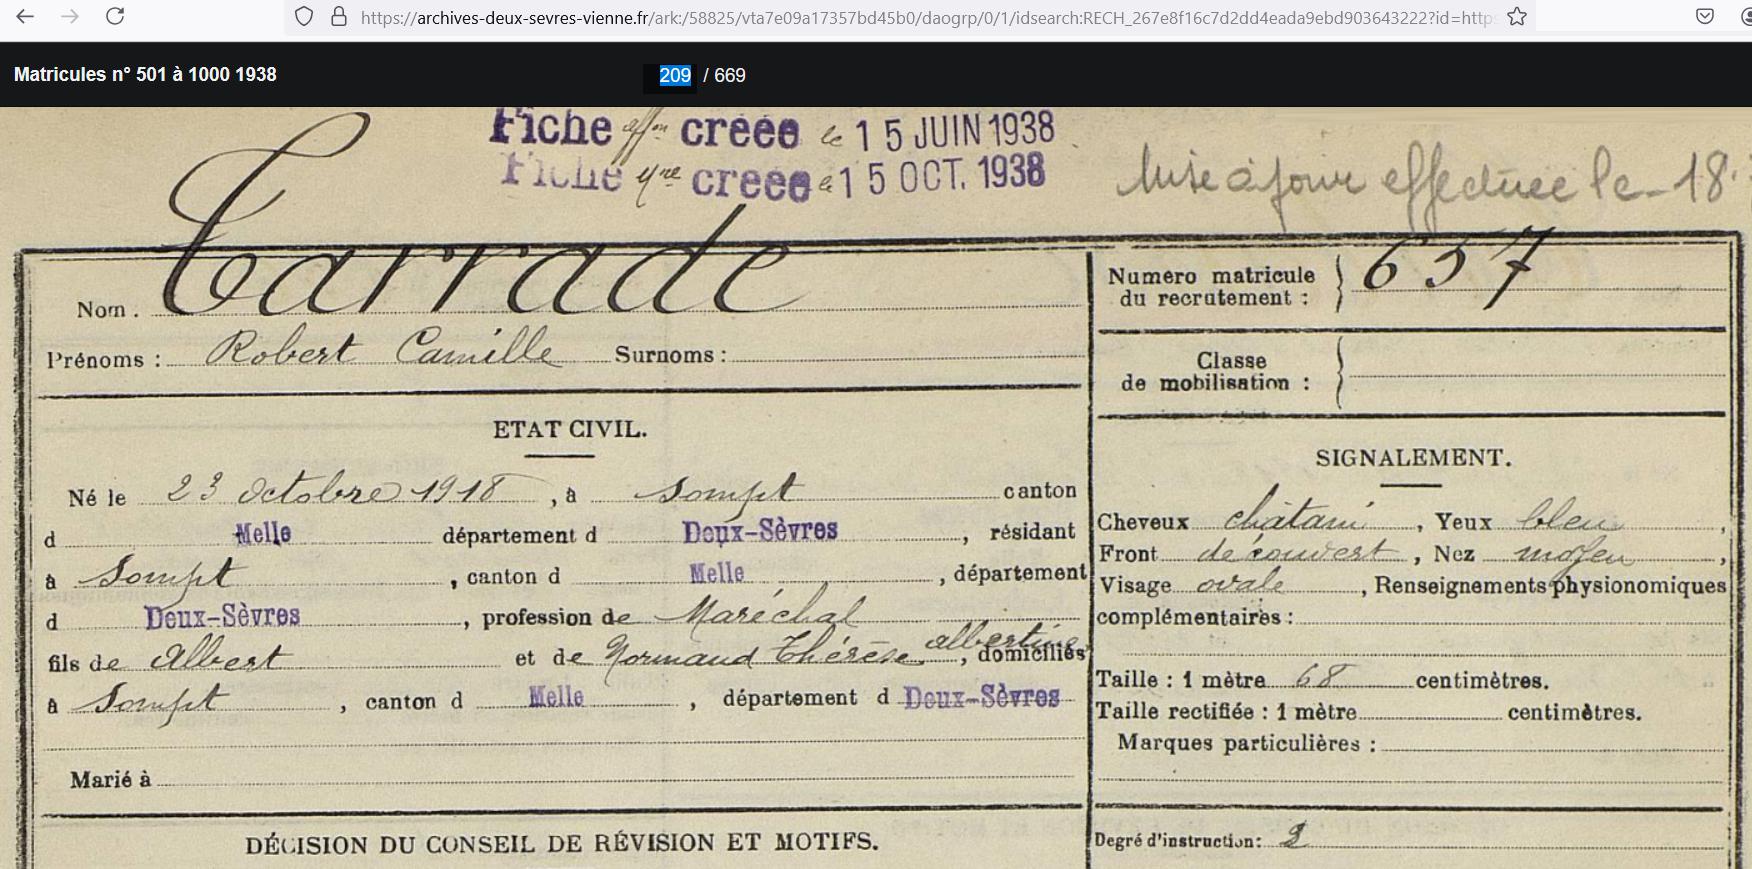 https://archives-deux-sevres-vienne.fr/ark:/58825/vta7e09a17357bd45b0/daogrp/0/1/idsearch:RECH_267e8f16c7d2dd4eada9ebd903643222?id=http
Matricules n° 501 à 1000 1938
209 / 669
Fiche affon créée le 15 JUIN 1938
Fiche yre créée le 15 OCT. 1938
Mise à jour effectuée le - 18.
Nom : Tarrade
Prénoms : Robert Camille Surnoms :
Numéro matricule du recrutement : 657
Classe de mobilisation :
ETAT CIVIL.
Né le 23 Octobre 1918, à Sompt canton
d Melle département d Deux-Sèvres, résidant
à Sompt, canton d Melle, département
d Deux-Sèvres, profession de Maréchal
fils de Albert et de Normand Thérèse albertine, domiciliés
à Sompt, canton d Melle, département d Deux-Sèvres
Marié à
DÉCISION DU CONSEIL DE RÉVISION ET MOTIFS.
SIGNALEMENT.
Cheveux châtain, Yeux bleu,
Front découvert, Nez moyen,
Visage ovale, Renseignements physionomiques
complémentaires :
Taille : 1 mètre 68 centimètres.
Taille rectifiée : 1 mètre centimètres.
Marques particulières :
Degré d'instruction : 2